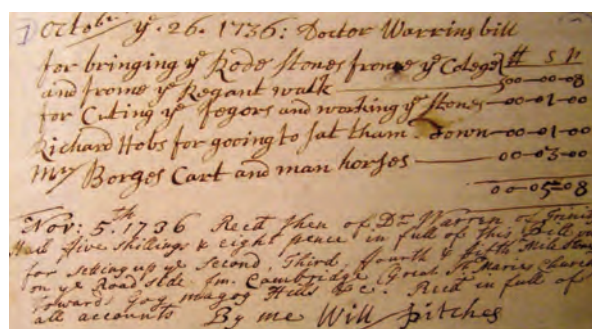 Octobr ye . 26 . 1736 : Doctor Warrins bill
for bringing ye Rode Stones frome ye Colege # S P
and frome ye Regant walk — 00-00-08
for Cuting ye Fegors and working ye Stones — 00-01-00
Richard Hobs for gooing to sat tham Down — 00-01-00
Mr Borges Cart and man horses — 00-03-00
00-05-08
Nov: 5.th 1736 Recd then of Dr Warren of Trinity
Hall five shillings & eight pence in full of this Bill
for setting up ye Second, Third, fourth & fifth Mile Stones
on ye Road side fm. Cambridge Great St Maries Church
towards Gogmagog Hills &c. Recd in full of
all accounts By me Will Pitches